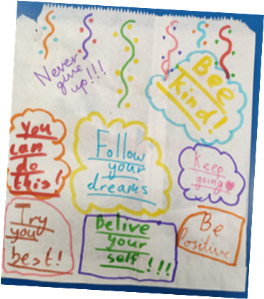 Never
give
up!!!
Bee
kind!
You
can
do
this!
Follow
your
dreams
Keep
going
Try
you
best!
Belive
your
self!!!
Be
Positive